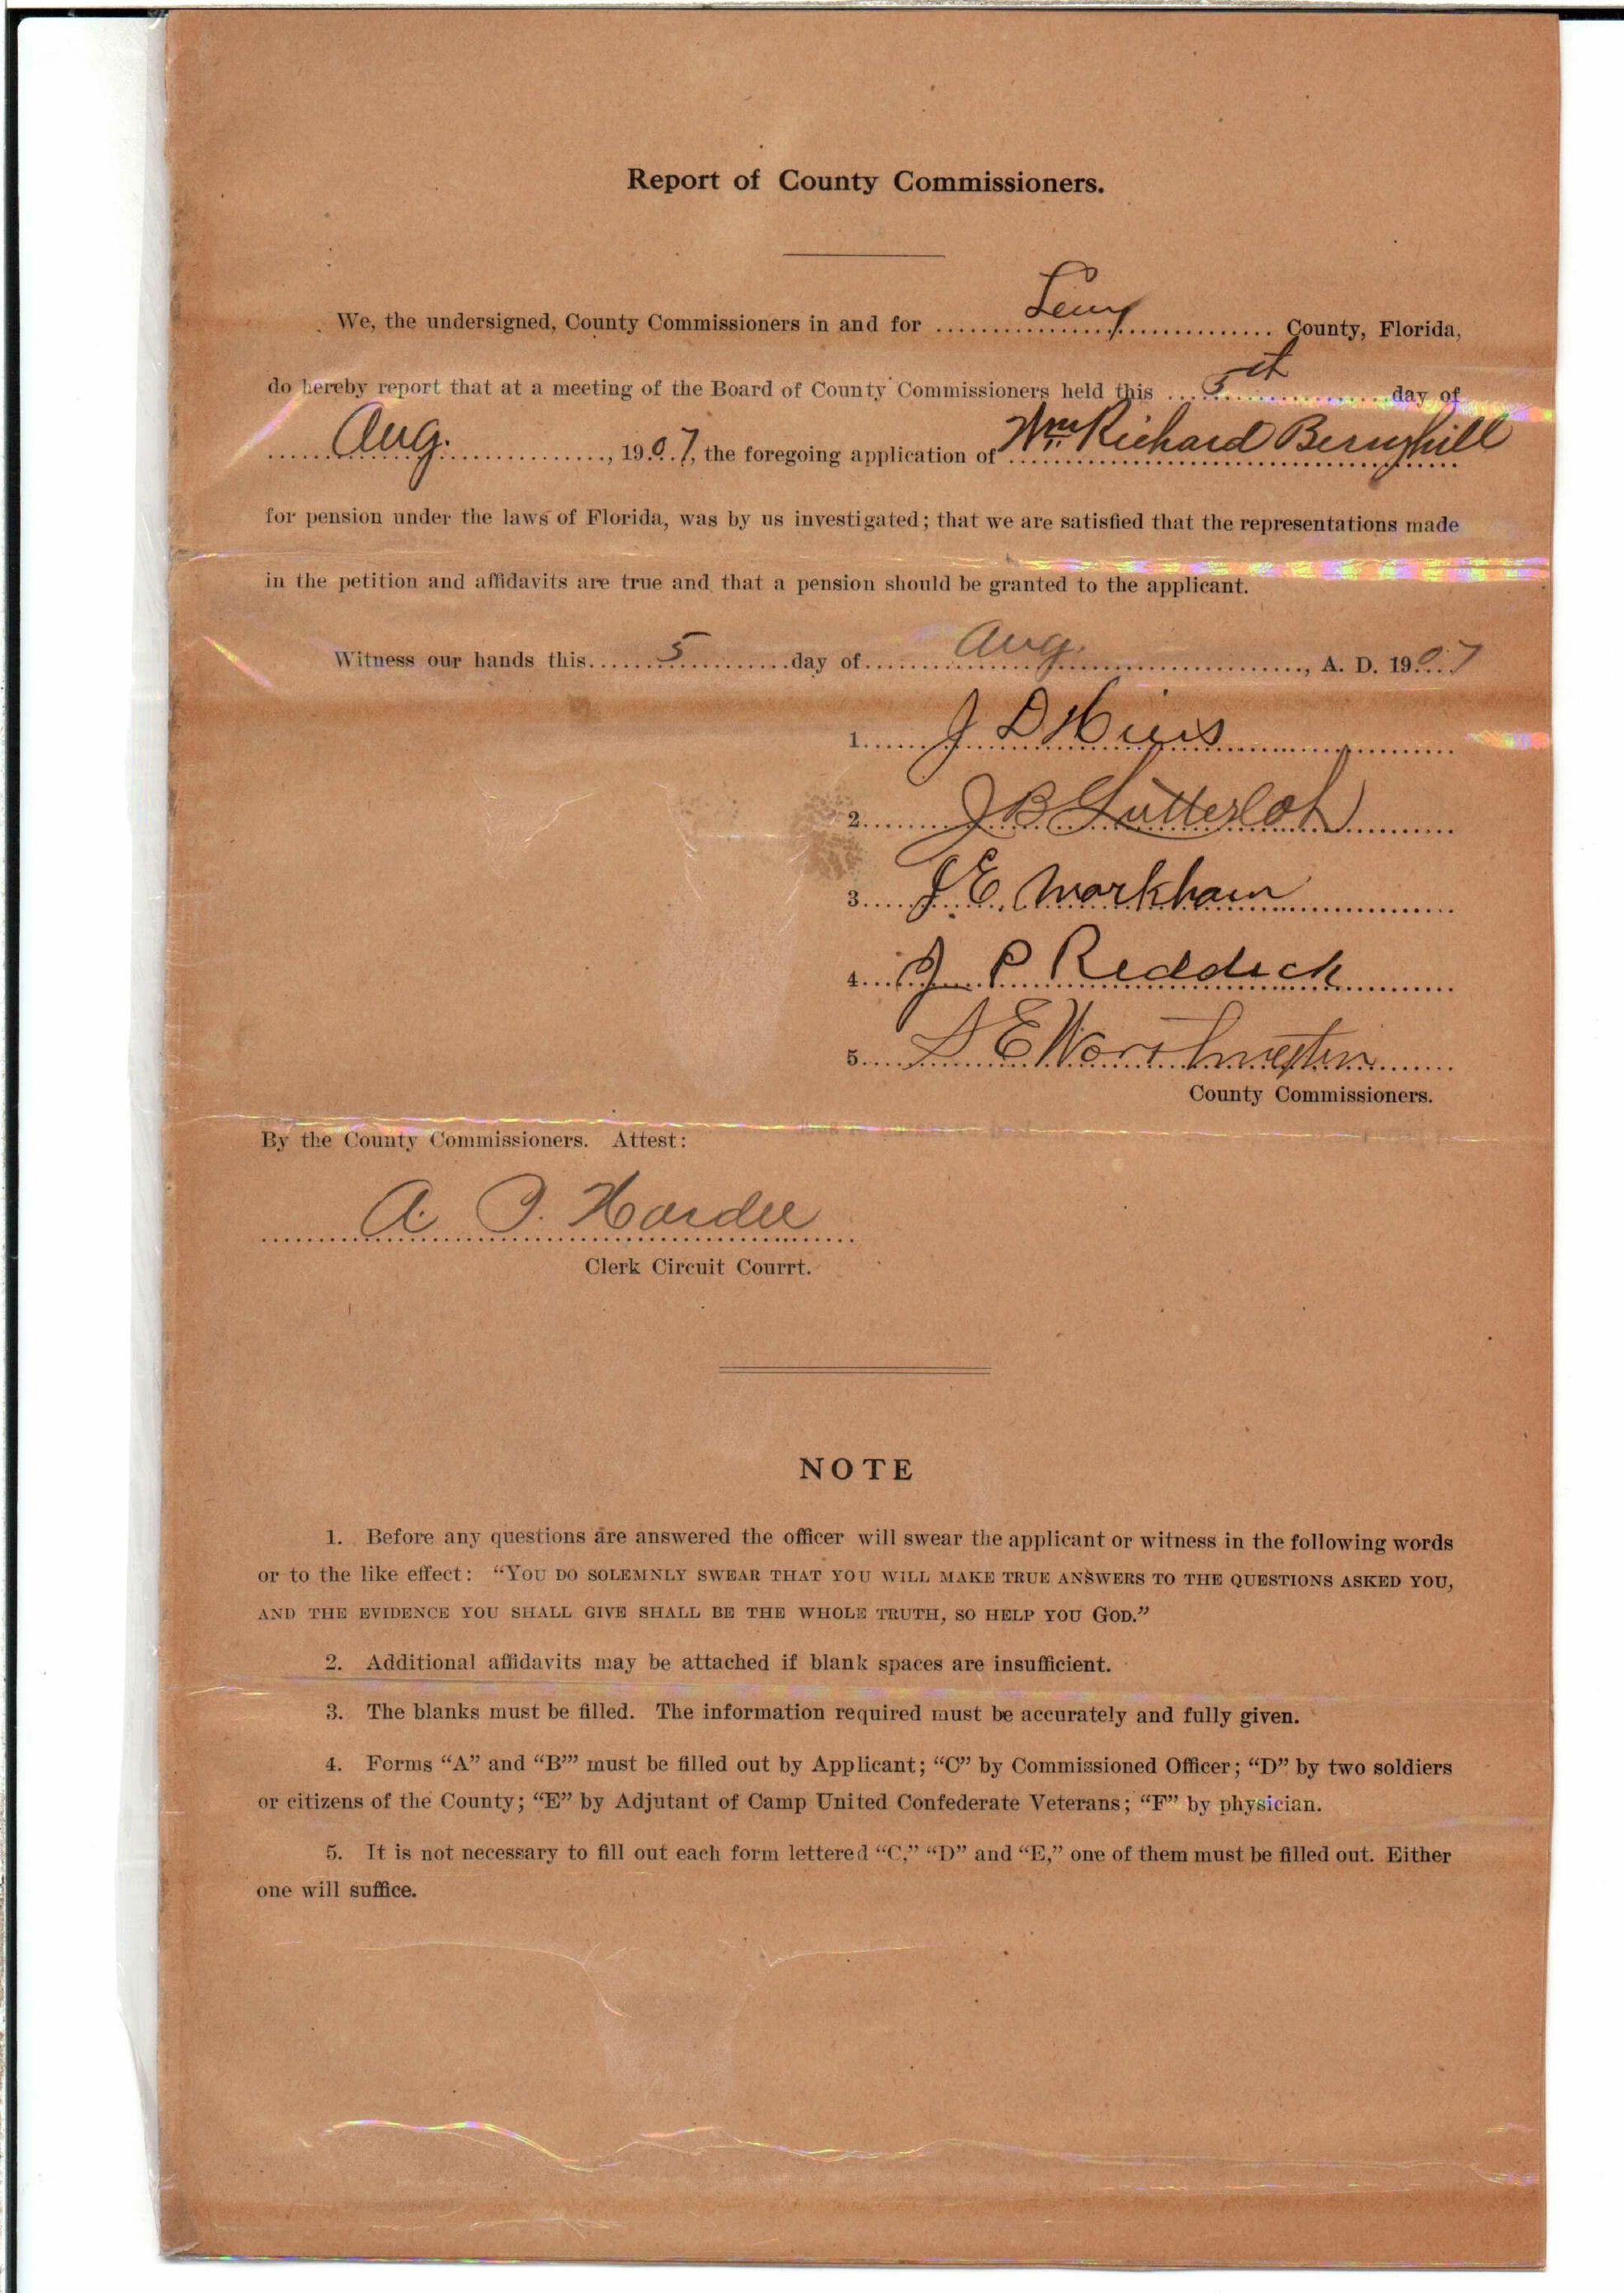 Report of County Commissioners.
We, the undersigned, County Commissioners in and for Levy County, Florida,
do hereby report that at a meeting of the Board of County Commissioners held this 5th day of
Aug. , 1907, the foregoing application of Wm Richard
for pension under the laws of Florida, was by us investigated; that we are satisfied that the representations made
in the petition and affidavits are true and that a pension should be granted to the applicant.
Witness our hands this 5 day of Aug. , A. D. 1907
1. J D
2. J B Gutterloh
3. J. E. Markham
4. J P Reddick
5. E Worthington
County Commissioners.
By the County Commissioners. Attest:
A. Hardee
Clerk Circuit Courrt.
NOTE
1. Before any questions are answered the officer will swear the applicant or witness in the following words
or to the like effect: “YOU DO SOLEMNLY SWEAR THAT YOU WILL MAKE TRUE ANSWERS TO THE QUESTIONS ASKED YOU,
AND THE EVIDENCE YOU SHALL GIVE SHALL BE THE WHOLE TRUTH, SO HELP YOU GOD.”
2. Additional affidavits may be attached if blank spaces are insufficient.
3. The blanks must be filled. The information required must be accurately and fully given.
4. Forms “A” and “B”’ must be filled out by Applicant; “C” by Commissioned Officer; “D” by two soldiers
or citizens of the County; “E” by Adjutant of Camp United Confederate Veterans; “F” by physician.
5. It is not necessary to fill out each form lettered “C,” “D” and “E,” one of them must be filled out. Either
one will suffice.